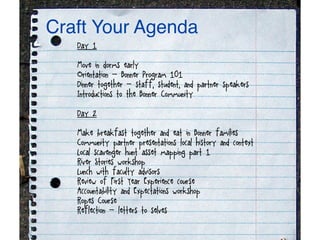 Craft Your Agenda
Day 1
Move in dorms early
Orientation - Bonner Program 101
Dinner together - staff, student, and partner speakers
Introductions to the Bonner Community
Day 2
Make breakfast together and eat in Bonner families
Community partner presentations local history and context
Local scavenger hunt asset mapping part 1
River Stories workshop
Lunch with faculty advisors
Review of First Year Experience course
Accountability and Expectations workshop
Ropes Course
Reflection - letters to selves